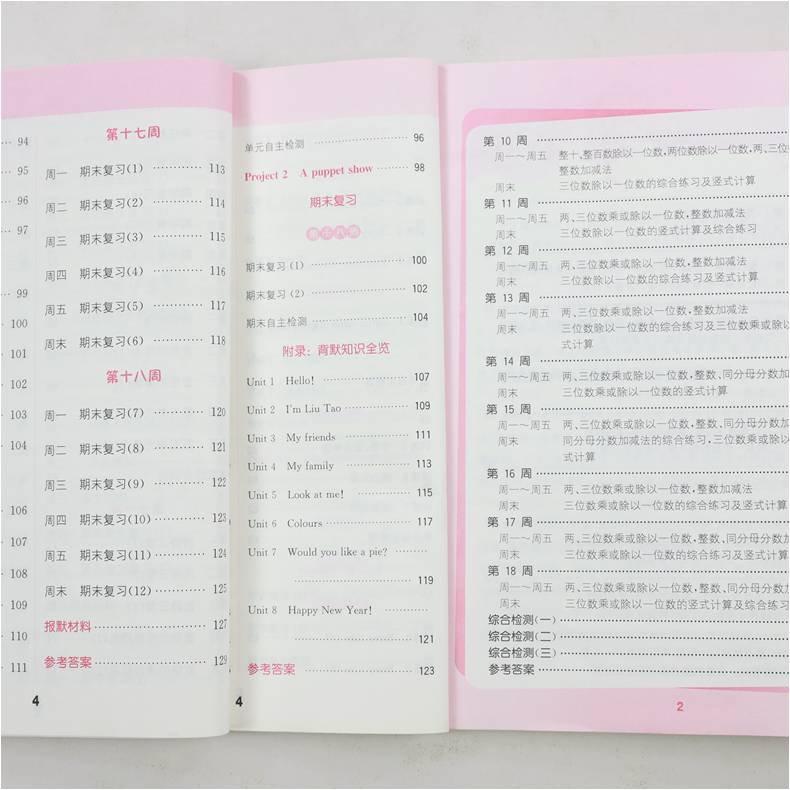 94
95
96
97
99
100
101
102
103
104
106
107
108
109
110
111
第十七周
周一 期末复习(1) ············ 113
周二 期末复习(2) ············ 114
周三 期末复习(3) ············ 115
周四 期末复习(4) ············ 116
周五 期末复习(5) ············ 117
周末 期末复习(6) ············ 118
第十八周
周一 期末复习(7) ············ 120
周二 期末复习(8) ············ 121
周三 期末复习(9) ············ 122
周四 期末复习(10) ············ 123
周五 期末复习(11) ············ 124
周末 期末复习(12) ············ 125
报默材料 ············ 127
参考答案 ············ 129
4
单元自主检测 ············ 96
Project 2 A puppet show ········· 98
期末复习
第十八周
期末复习(1) ············ 100
期末复习(2) ············ 102
期末自主检测 ············ 104
附录：背默知识全览
Unit 1 Hello! ············ 107
Unit 2 I'm Liu Tao ············ 109
Unit 3 My friends ············ 111
Unit 4 My family ············ 113
Unit 5 Look at me! ············ 115
Unit 6 Colours ············ 117
Unit 7 Would you like a pie? ·········
············ 119
Unit 8 Happy New Year! ·········
············ 121
参考答案 ············ 123
4
第 10 周 ············
周一～周五 整十、整百数除以一位数,两位数除以一位数,两、三位
整数加减法
周末 三位数除以一位数的综合练习及竖式计算
第 11 周 ············
周一～周五 两、三位数乘或除以一位数,整数加减法
周末 三位数除以一位数的竖式计算及综合练习
第 12 周 ············
周一～周五 两、三位数乘或除以一位数,整数加减法
周末 三位数除以一位数的综合练习及竖式计算
第 13 周 ············
周一～周五 两、三位数乘或除以一位数,整数加减法
周末 三位数除以一位数的综合练习及三位数乘或除以
式计算
第 14 周 ············
周一～周五 两、三位数乘或除以一位数,整数、同分母分数加
周末 三位数乘或除以一位数的竖式计算
第 15 周 ············
周一～周五 两、三位数乘或除以一位数,整数、同分母分数加
周末 同分母分数加减法的综合练习,三位数乘或除以
式计算
第 16 周 ············
周一～周五 两、三位数乘或除以一位数,整数加减法
周末 三位数乘或除以一位数的综合练习及竖式计算
第 17 周 ············
周一～周五 两、三位数乘或除以一位数,整数、同分母分数加
周末 三位数乘或除以一位数的综合练习及竖式计算
第 18 周 ············
周一～周五 两、三位数乘或除以一位数,整数、同分母分数加
周末 三位数乘或除以一位数的竖式计算及综合练习
综合检测(一) ············
综合检测(二) ············
综合检测(三) ············
参考答案 ············
2